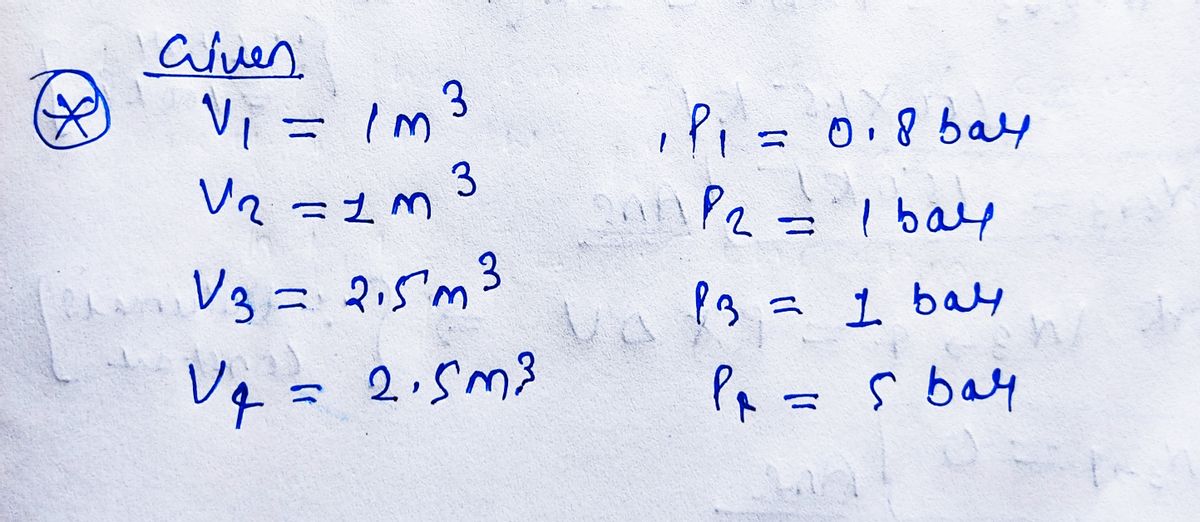 Given
V1 = 1 m³ , P1 = 0.8 bar
V2 = 1 m³ P2 = 1 bar
V3 = 2.5 m³ P3 = 1 bar
V4 = 2.5 m³ P4 = 5 bar